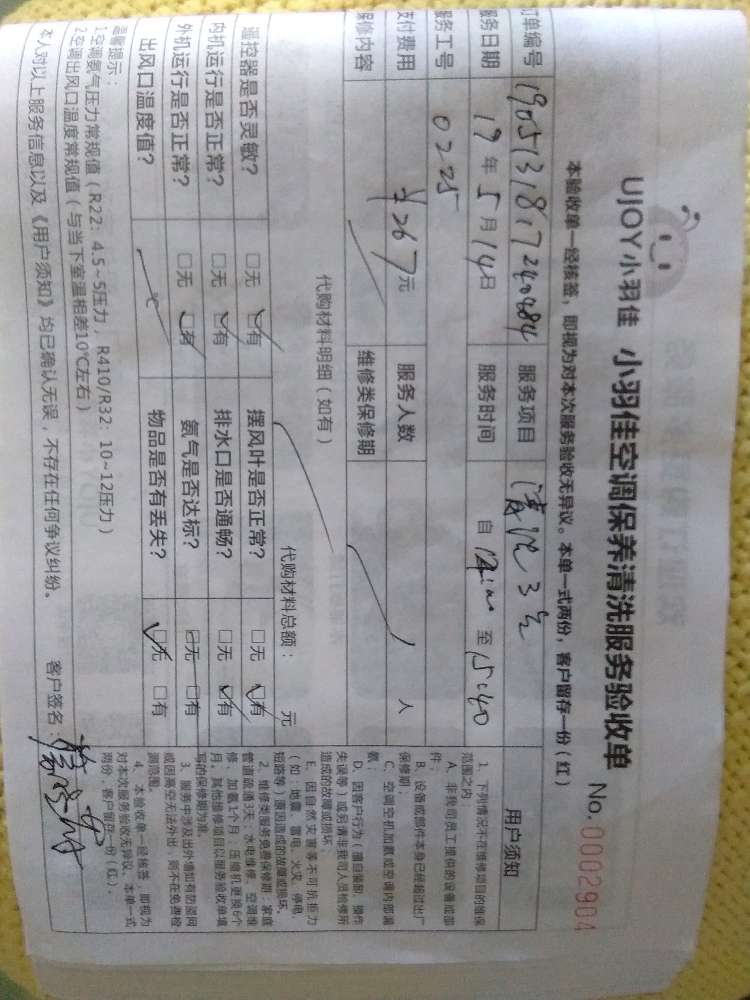 UJOY小羽佳 小羽佳空调保养清洗服务验收单
No.0002904
本验收单一经核签,即视为对本次服务验收无异议。本单一式两份,客户留存一份(红)
订单编号 服务项目 清洗3台
服务日期 19年5月14日 服务时间 自 至15:40
服务工号 0225
支付费用 267元 服务人数 人
保修内容 维修类保修期
代购材料明细(如有) 代购材料总额: 元
遥控器是否灵敏? □无 □有 摆风叶是否正常? □无 □有
内机运行是否正常? □无 □有 排水口是否通畅? □无 □有
外机运行是否正常? □无 □有 氨气是否达标? □无 □有
出风口温度值? ℃ 物品是否有丢失? □无 □有
温馨提示:
1空调氨气压力常规值(R22:4.5~5压力,R410/R32:10~12压力)
2空调出风口温度常规值(与当下室温相差10℃左右)
本人对以上服务信息以及《用户须知》均已确认无误,不存在任何争议纠纷。 客户签名:
用户须知
1、下列情况不在维修项目的维保
范围之内:
A、非我司员工提供的设备或部
件;
B、设备或部件本身已经超过出厂
保修期;
C、空调空机加氨或空调内部漏
氨;
D、因客户行为(擅自操卸、操作
失误等)或另请非我司人员检修所
造成的故障或损坏;
E、因自然灾害等不可抗拒力
(如:地震、雷电、火灾、停电、
短路等)原因造成的故障或损坏。
2、维修类服务免费保修期:家庭
管道疏通3天;水电维修、空调维
修、加氨1个月;压缩机更换6个
月。其他维修项目以服务验收单填
写的保修期为准。
3、服务中涉及出外墙如有防盗网
或因高空无法外出,则不在免费检
测范围。
4、本验收单一经核签,即视为
对本次服务验收无异议。本单一式
两份,客户留存一份(红)。